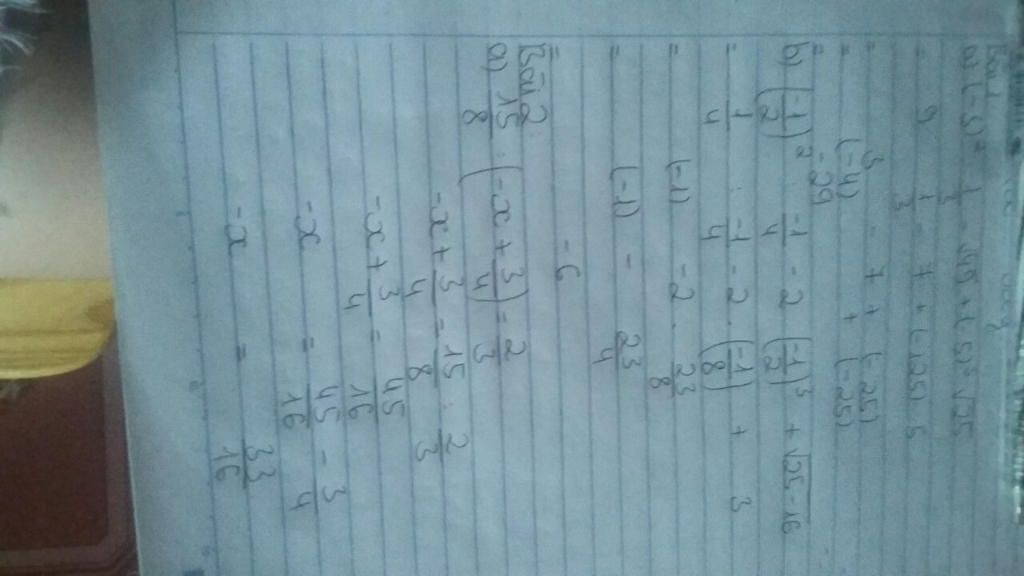 Bài 1
a) (-3)² . 1/3 - √49 + (-5)³ : √25
= 9 . 1/3 - 7 + (-125) : 5
= 3 - 7 + (-25)
= (-4) + (-25)
= -29
b) (-1/2)² : -1/4 - 2 (-1/2)³ + √25-16
= 1/4 : -1/4 - 2 . (-1/8) + 3
= (-1) - 2 . 23/8
= (-1) - 23/4
= -6
Bài 2
a) 15/8 : (-x + 3/4) = 2/3
-x + 3/4 = 15/8 : 2/3
-x + 3/4 = 45/16
-x = 45/16 - 3/4
-x = 33/16